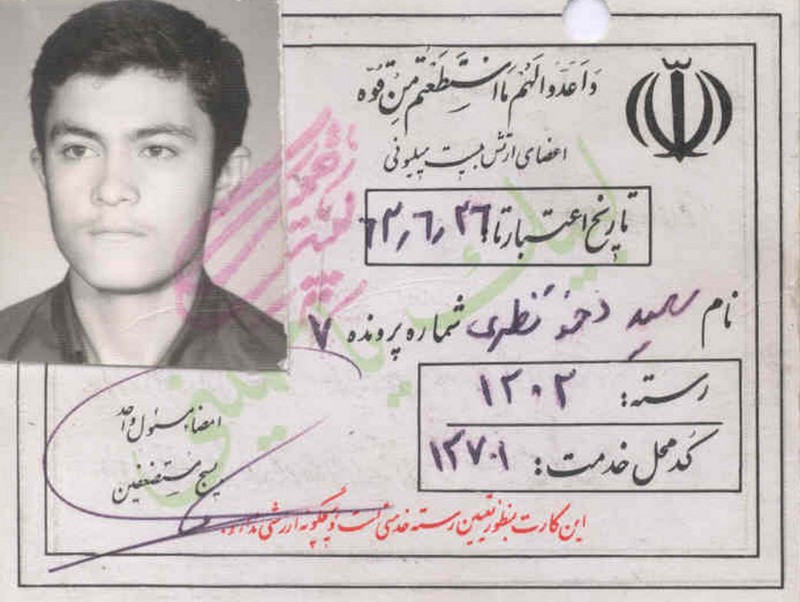 وَاَعِدّوالَهُم مَااستَطَعتُم مِن قُوّه
اعضای ارتش بیست میلیونی
تاریخ اعتبار تا: ۶۳٫۶٫۳۶
نام سعید نظری شماره پرونده ۷
رسته: ۱۲۰۲
کد محل خدمت: ۱۲۷۰۱
امضاء مسئول واحد
بسیج مستضعفین
این کارت بمنظور تعیین رسته خدمتی است و هیچگونه ارزشی ندارد.
لبیک یا خمینی